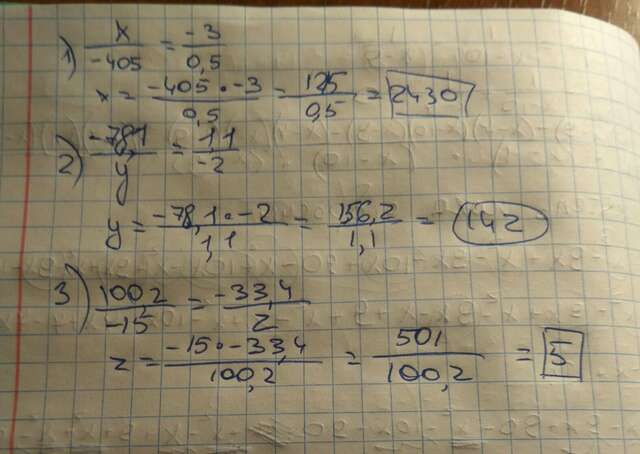 1) x/-405 = -3/0,5
x = -405·-3/0,5 = 125/0,5 = 2430
2) -781/y = 1,1/-2
y = -78,1·-2/1,1 = 156,2/1,1 = 142
3) 1002/-15 = -33,4/z
z = -15·-33,4/100,2 = 501/100,2 = 5